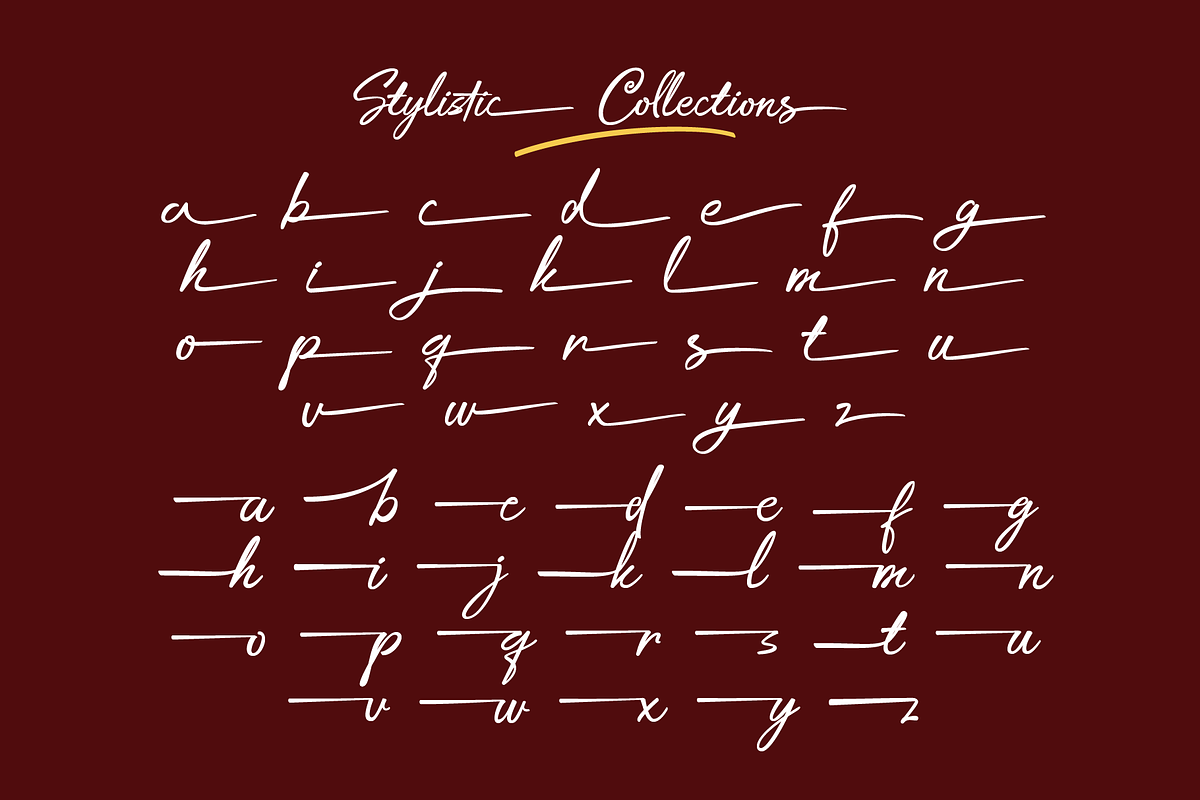 Stylistic Collections
a b c d e f g
h i j k l m n
o p q r s t u
v w x y z
a b c d e f g
h i j k l m n
o p q r s t u
v w x y z